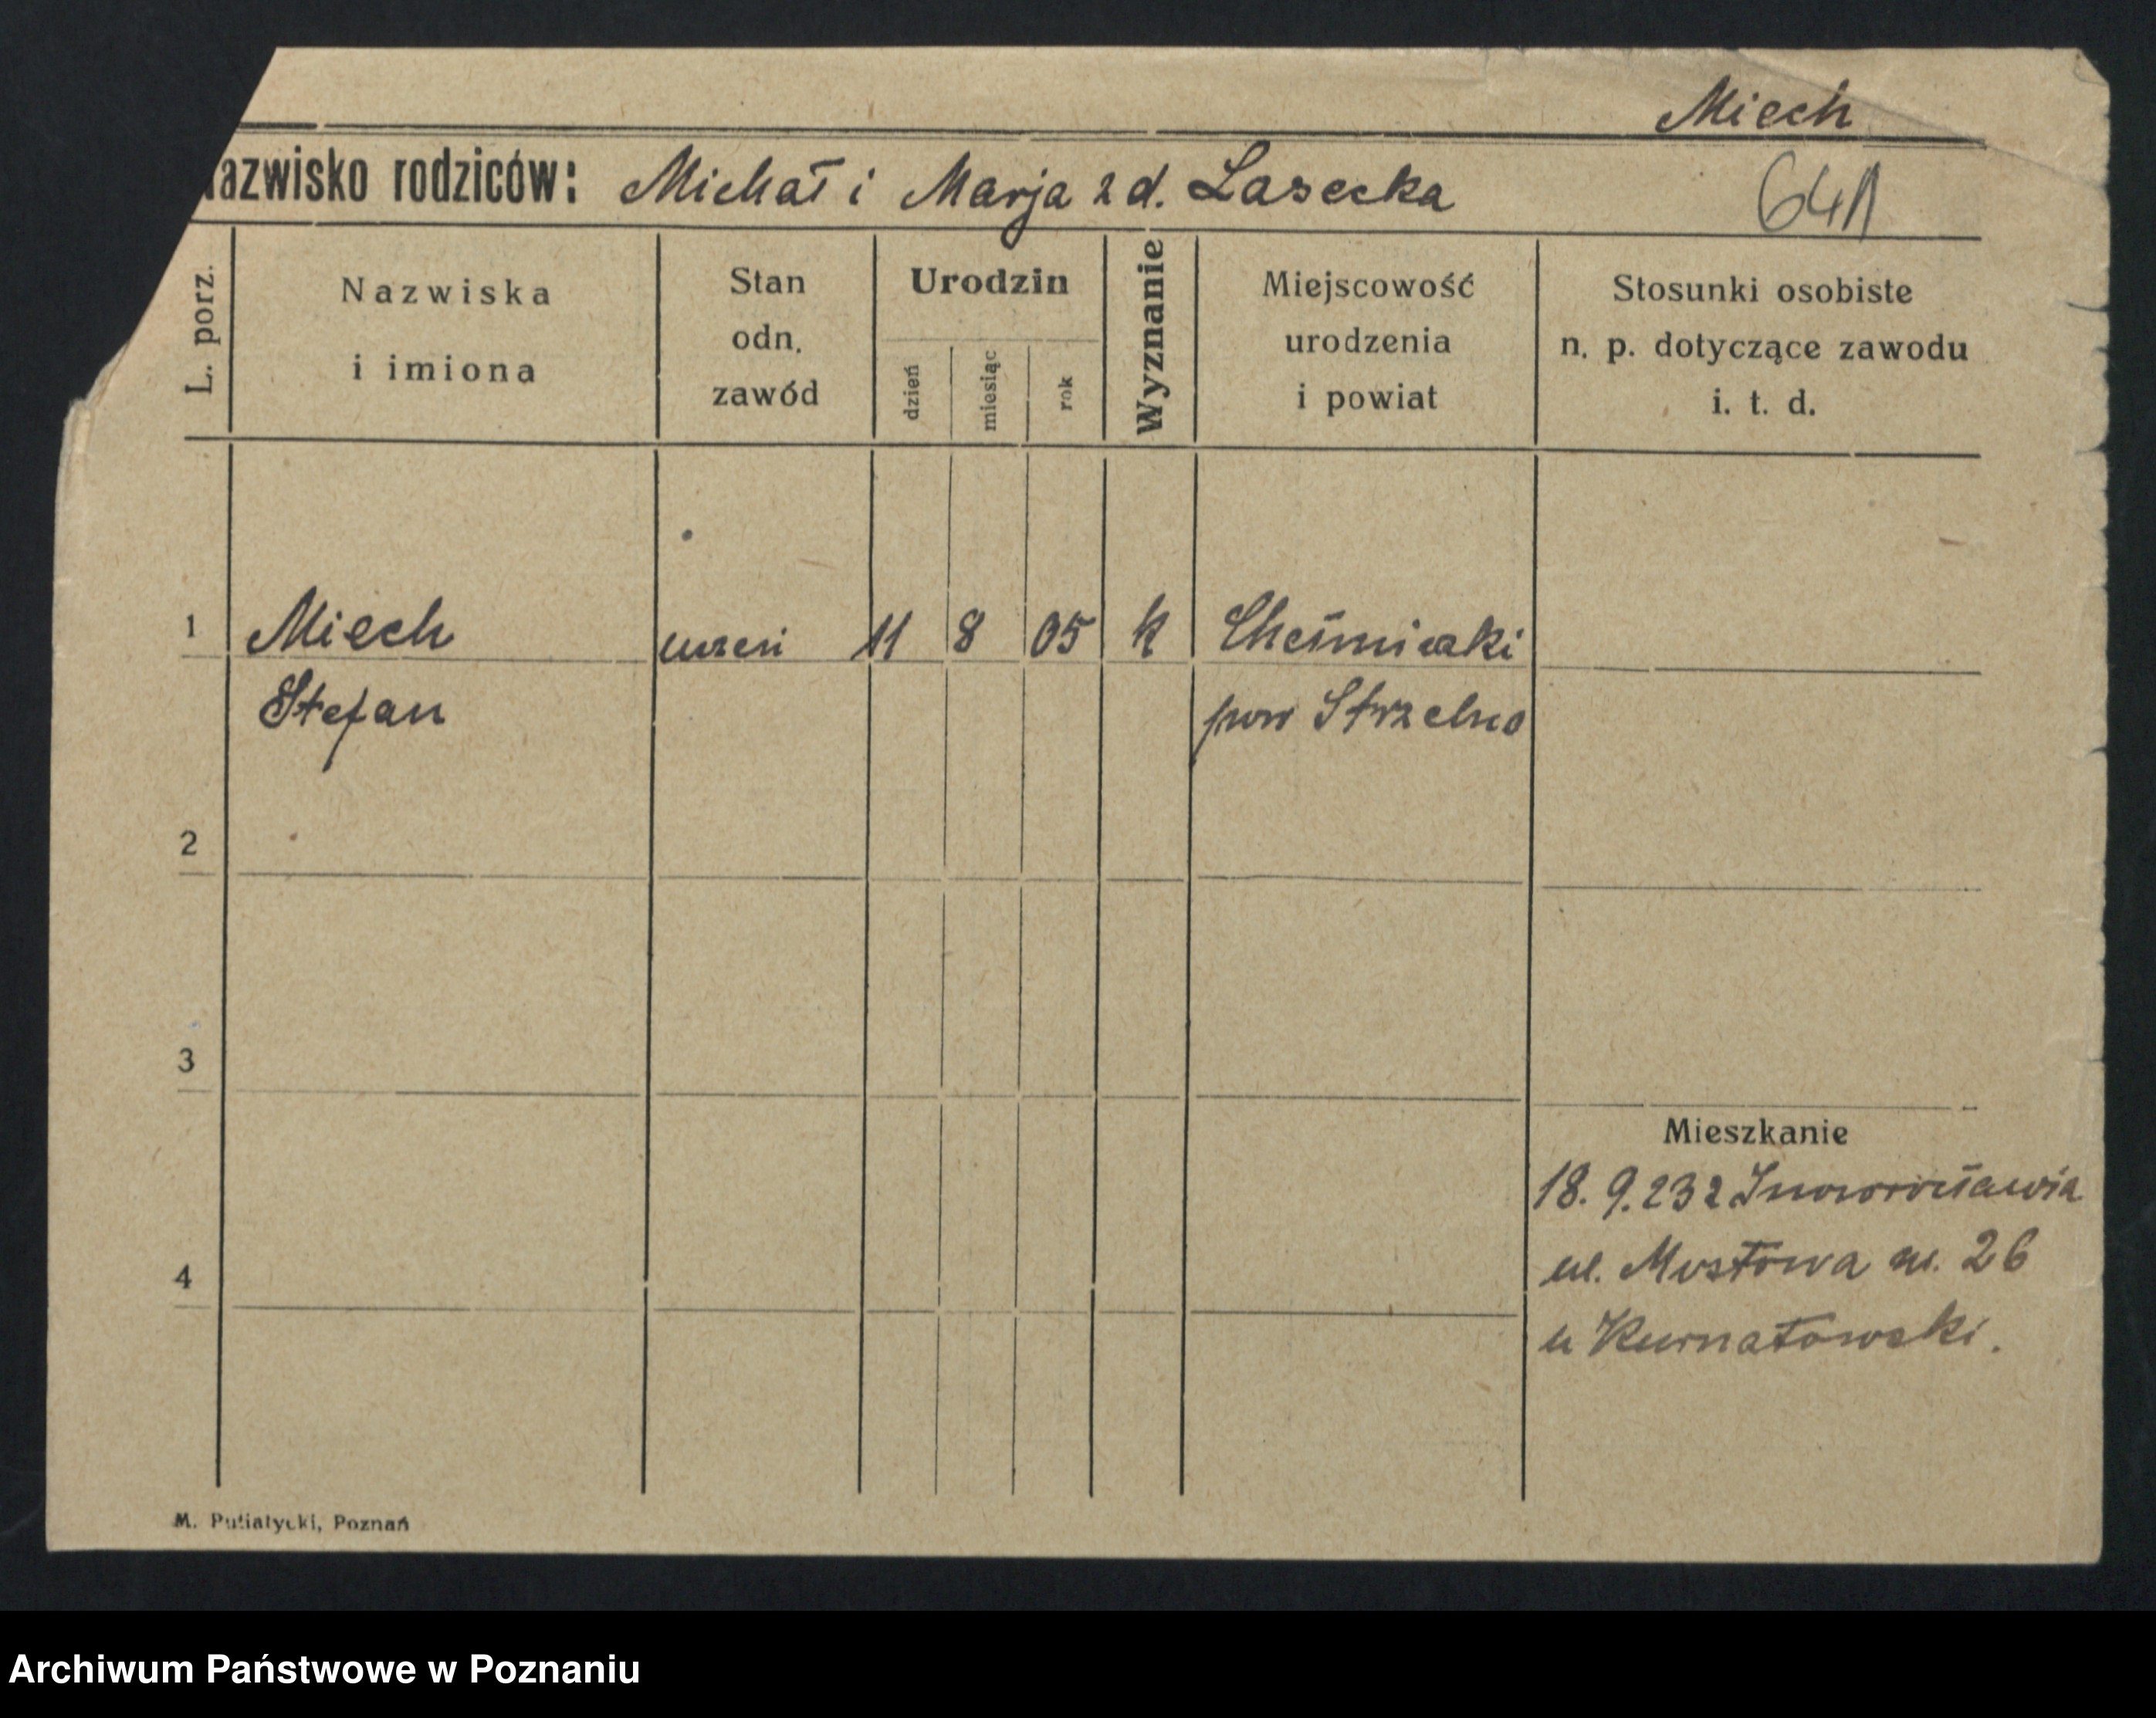 Miech
azwisko rodziców: Michał i Marja z d. Lasecka
L. porz.
Nazwiska
i imiona
Stan
odn.
zawód
Urodzin
dzień
miesiąc
rok
Wyznanie
Miejscowość
urodzenia
i powiat
Stosunki osobiste
n. p. dotyczące zawodu
i. t. d.
1 Miech uczeń 11 8 05 k
Stefan pow Strzelno
2
3
Mieszkanie
18. 9. 23 z Inowrocławia
ul. Mostowa nr. 26
4
u Kurnatowski.
M. Putiatycki, Poznań
Archiwum Państwowe w Poznaniu